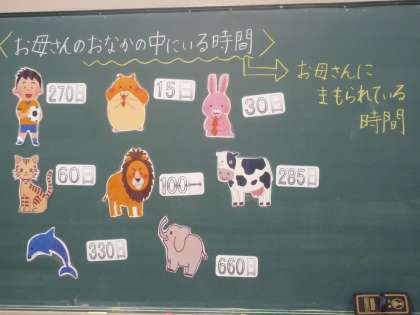 〈お母さんのおなかの中にいる時間〉
お母さんに
まもられている
時間
270日
15日
30日
60日
100
285日
330日
660日